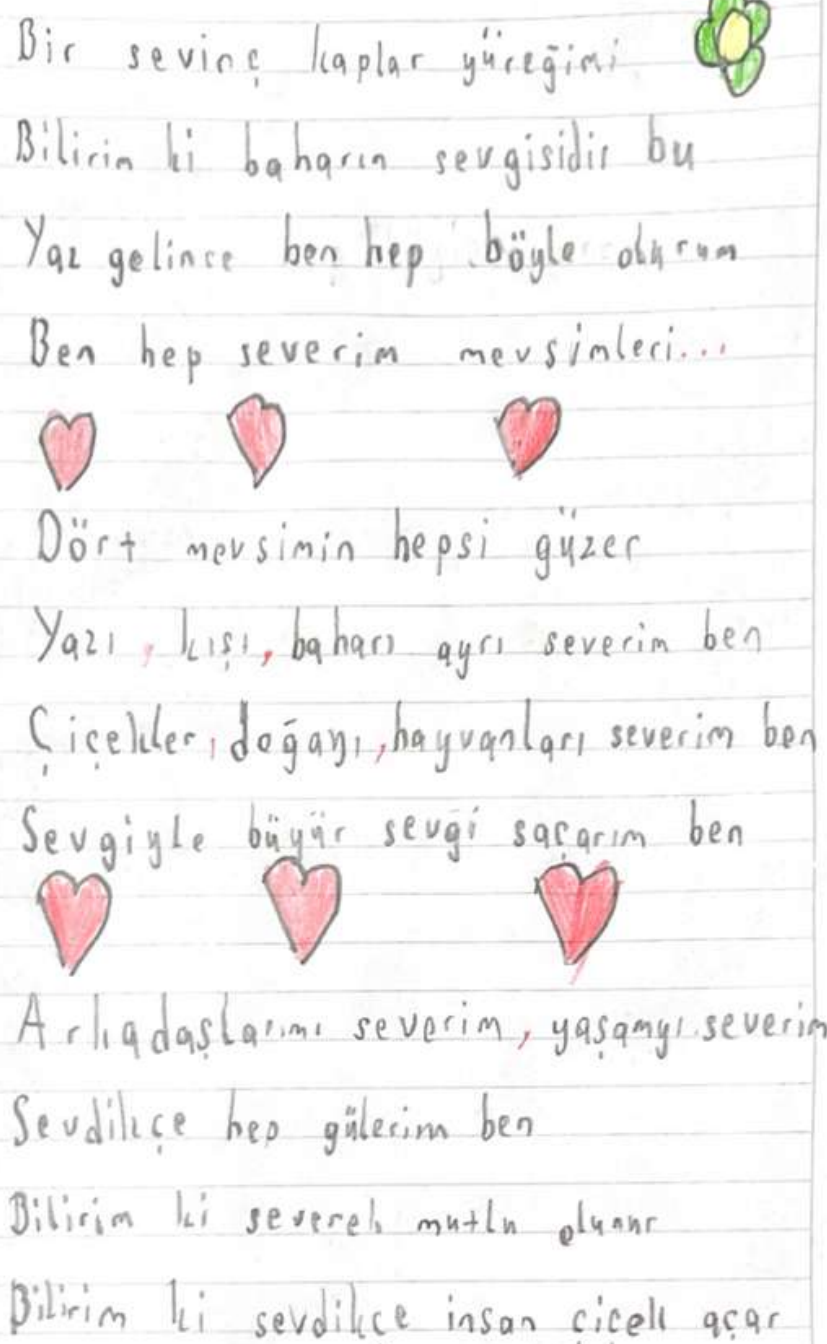 Bir sevinç kaplar yüreğimi
Bilirim ki baharın sevgisidir bu
Yaz gelince ben hep böyle olurum
Ben hep severim mevsimleri...
Dört mevsimin hepsi güzer
Yazı, kışı, baharı ayrı severim ben
Çiçekler, doğayı, hayvanları severim ben
Sevgiyle büyür sevgi saçarım ben
Arkadaşlarımı severim, yaşamyı severim
Sevdikçe hep gülerim ben
Bilirim ki severek mutlu olunur
Bilirim ki sevdikce insan çiçek açar